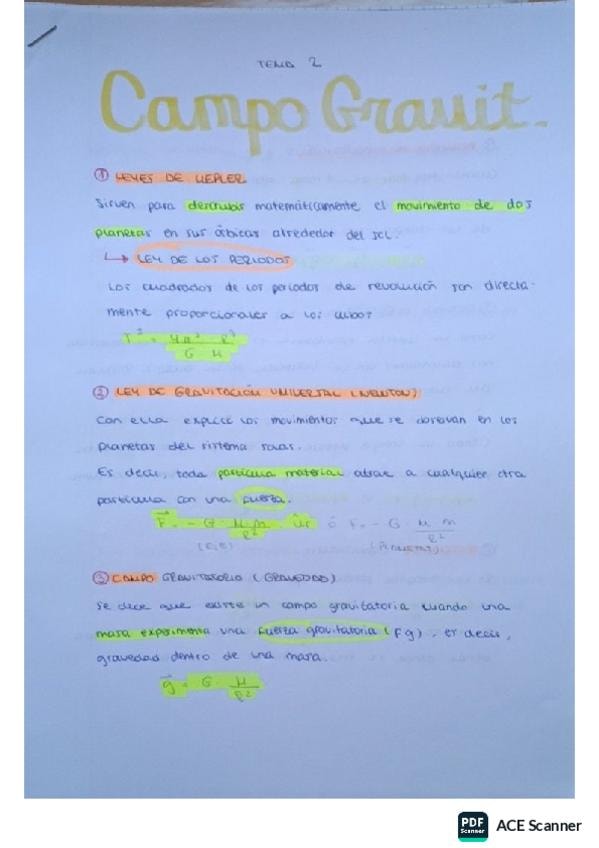 TEMA 2
Campo Gravit.
① LEYES DE KEPLER
Sirven para describir matemáticamente el movimiento de dos
planetas en sus órbitas alrededor del sol.
↳ LEY DE LOS PERIODOS
Los cuadrados de los periodos de revolución son directa-
mente proporcionales a los cubos
T² = 4π² · R³ / G · M
② LEY DE GRAVITACIÓN UNIVERSAL (NEWTON)
Con ella explicó los movimientos que se observan en los
planetas del sistema solar.
Es decir, toda partícula material atrae a cualquier otra
partícula con una fuerza.
F = - G · M·m / R² · ûr ó F = - G · M · m / R²
(PLANETAS)
③ CAMPO GRAVITATORIO (GRAVEDAD)
Se dice que existe un campo gravitatorio cuando una
masa experimenta una fuerza gravitatoria (Fg), es decir,
gravedad dentro de una masa.
g = G · M / R²
PDF
Scanner
ACE Scanner